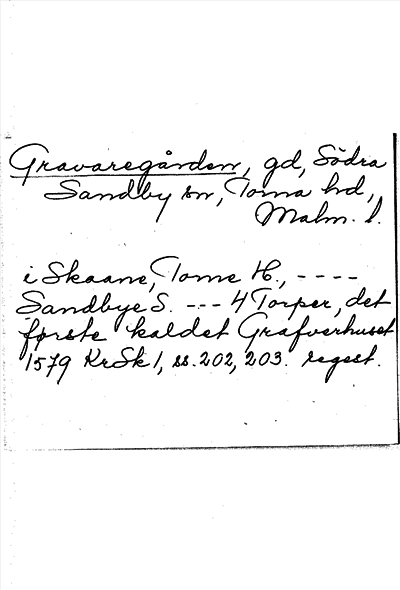 Gravaregården, gd, Södra
Sandby sn, Torna hd,
Malm. l.
i Skaane, Torne H., ----
Sandbye S. --- 4 Torper, det
første kaldet Grafverhuset
1579 KrSk 1, ss. 202, 203. regest.